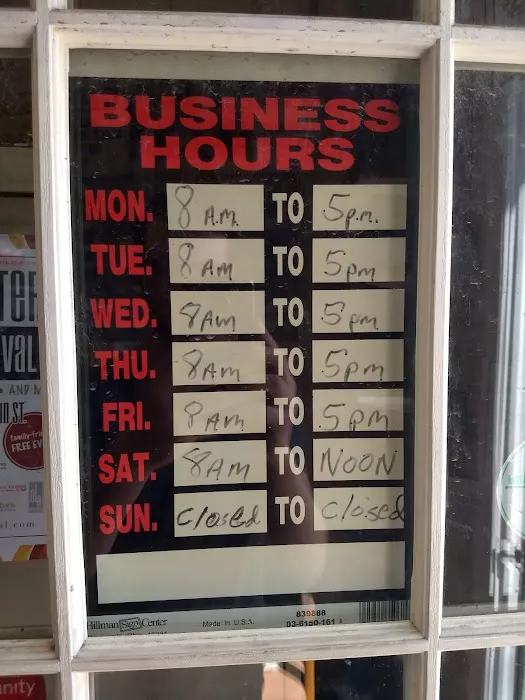 BUSINESS
HOURS
MON. 8 A.M. TO 5 p.m.
TUE. 8 AM TO 5pm
WED. 8 Am TO 5pm
THU. 8 Am TO 5pm
FRI. 8 Am TO 5pm
SAT. 8 AM TO NOON
SUN. closed TO closed
Hillman Sign Center Made In U.S.A. 839888
03-6150-161
TER
VAL
AND M
IN ST.
family-fri
FREE EV
l.com
nity